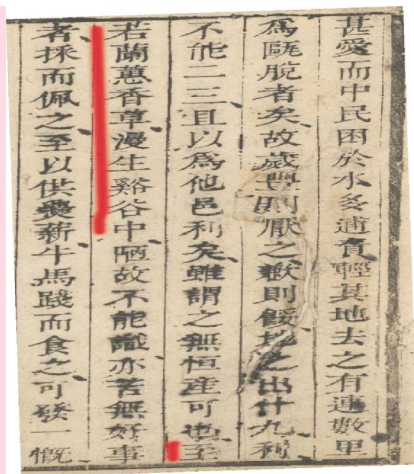 甚愛而中民困於水多逋負輕其地去之有連數甲
為脫者矣故歲豐則厭之歉則餒地之出什九利
不能二三且以為他邑利矣雖謂之無恒產可也至
若蘭蕙香草漫生谿谷中陋故不能識亦苦無好事
者採而佩之至以供爨薪牛馬踐而食之可發一慨